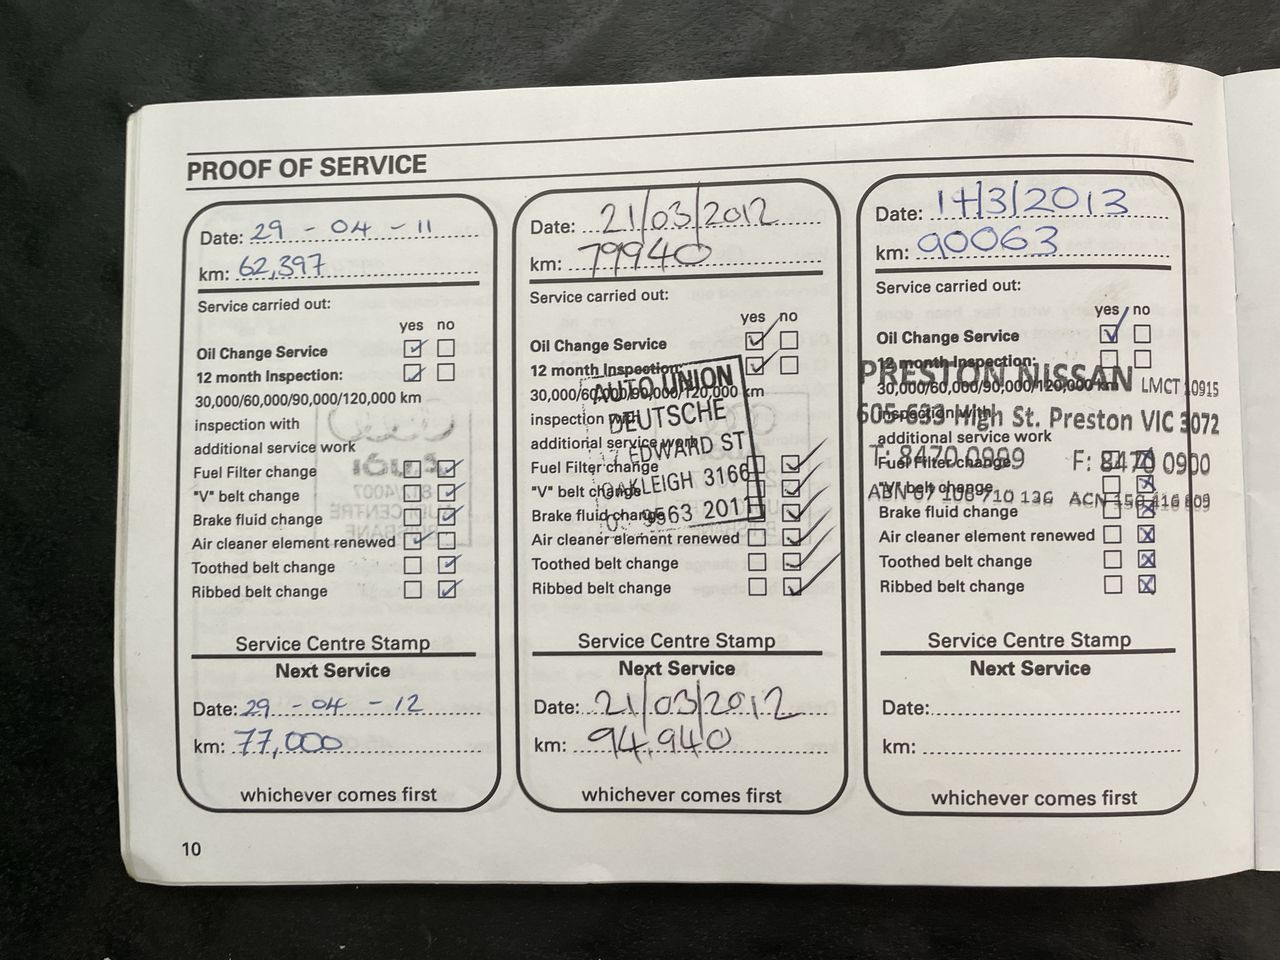 PROOF OF SERVICE
Date: 29 - 04 - 11
km: 62,397
Service carried out:
yes no
Oil Change Service
12 month Inspection:
30,000/60,000/90,000/120,000 km
inspection with
additional service work
Fuel Filter change
"V" belt change
Brake fluid change
Air cleaner element renewed
Toothed belt change
Ribbed belt change
Service Centre Stamp
Next Service
Date: 29 - 04 - 12
km: 77,000
whichever comes first
Date: 21/03/2012
km: 79940
Service carried out:
yes no
Oil Change Service
12 month Inspection:
30,000/60,000/90,000/120,000 km
inspection with
additional service work
Fuel Filter change
"V" belt change
Brake fluid change
Air cleaner element renewed
Toothed belt change
Ribbed belt change
AUTO UNION
DEUTSCHE
EDWARD ST
OAKLEIGH 3166
9563 2011
Service Centre Stamp
Next Service
Date: 21/03/2012
km: 94,940
whichever comes first
Date: 14/3/2013
km: 90063
Service carried out:
yes no
Oil Change Service
12 month Inspection:
30,000/60,000/90,000/120,000 km
inspection with
additional service work
Fuel Filter change
"V" belt change
Brake fluid change
Air cleaner element renewed
Toothed belt change
Ribbed belt change
PRESTON NISSAN LMCT 10915
605-633 High St. Preston VIC 3072
T: 8470 0999 F: 8470 0900
ABN 67 108 710 136 ACN 156 416 809
Service Centre Stamp
Next Service
Date:
km:
whichever comes first
10